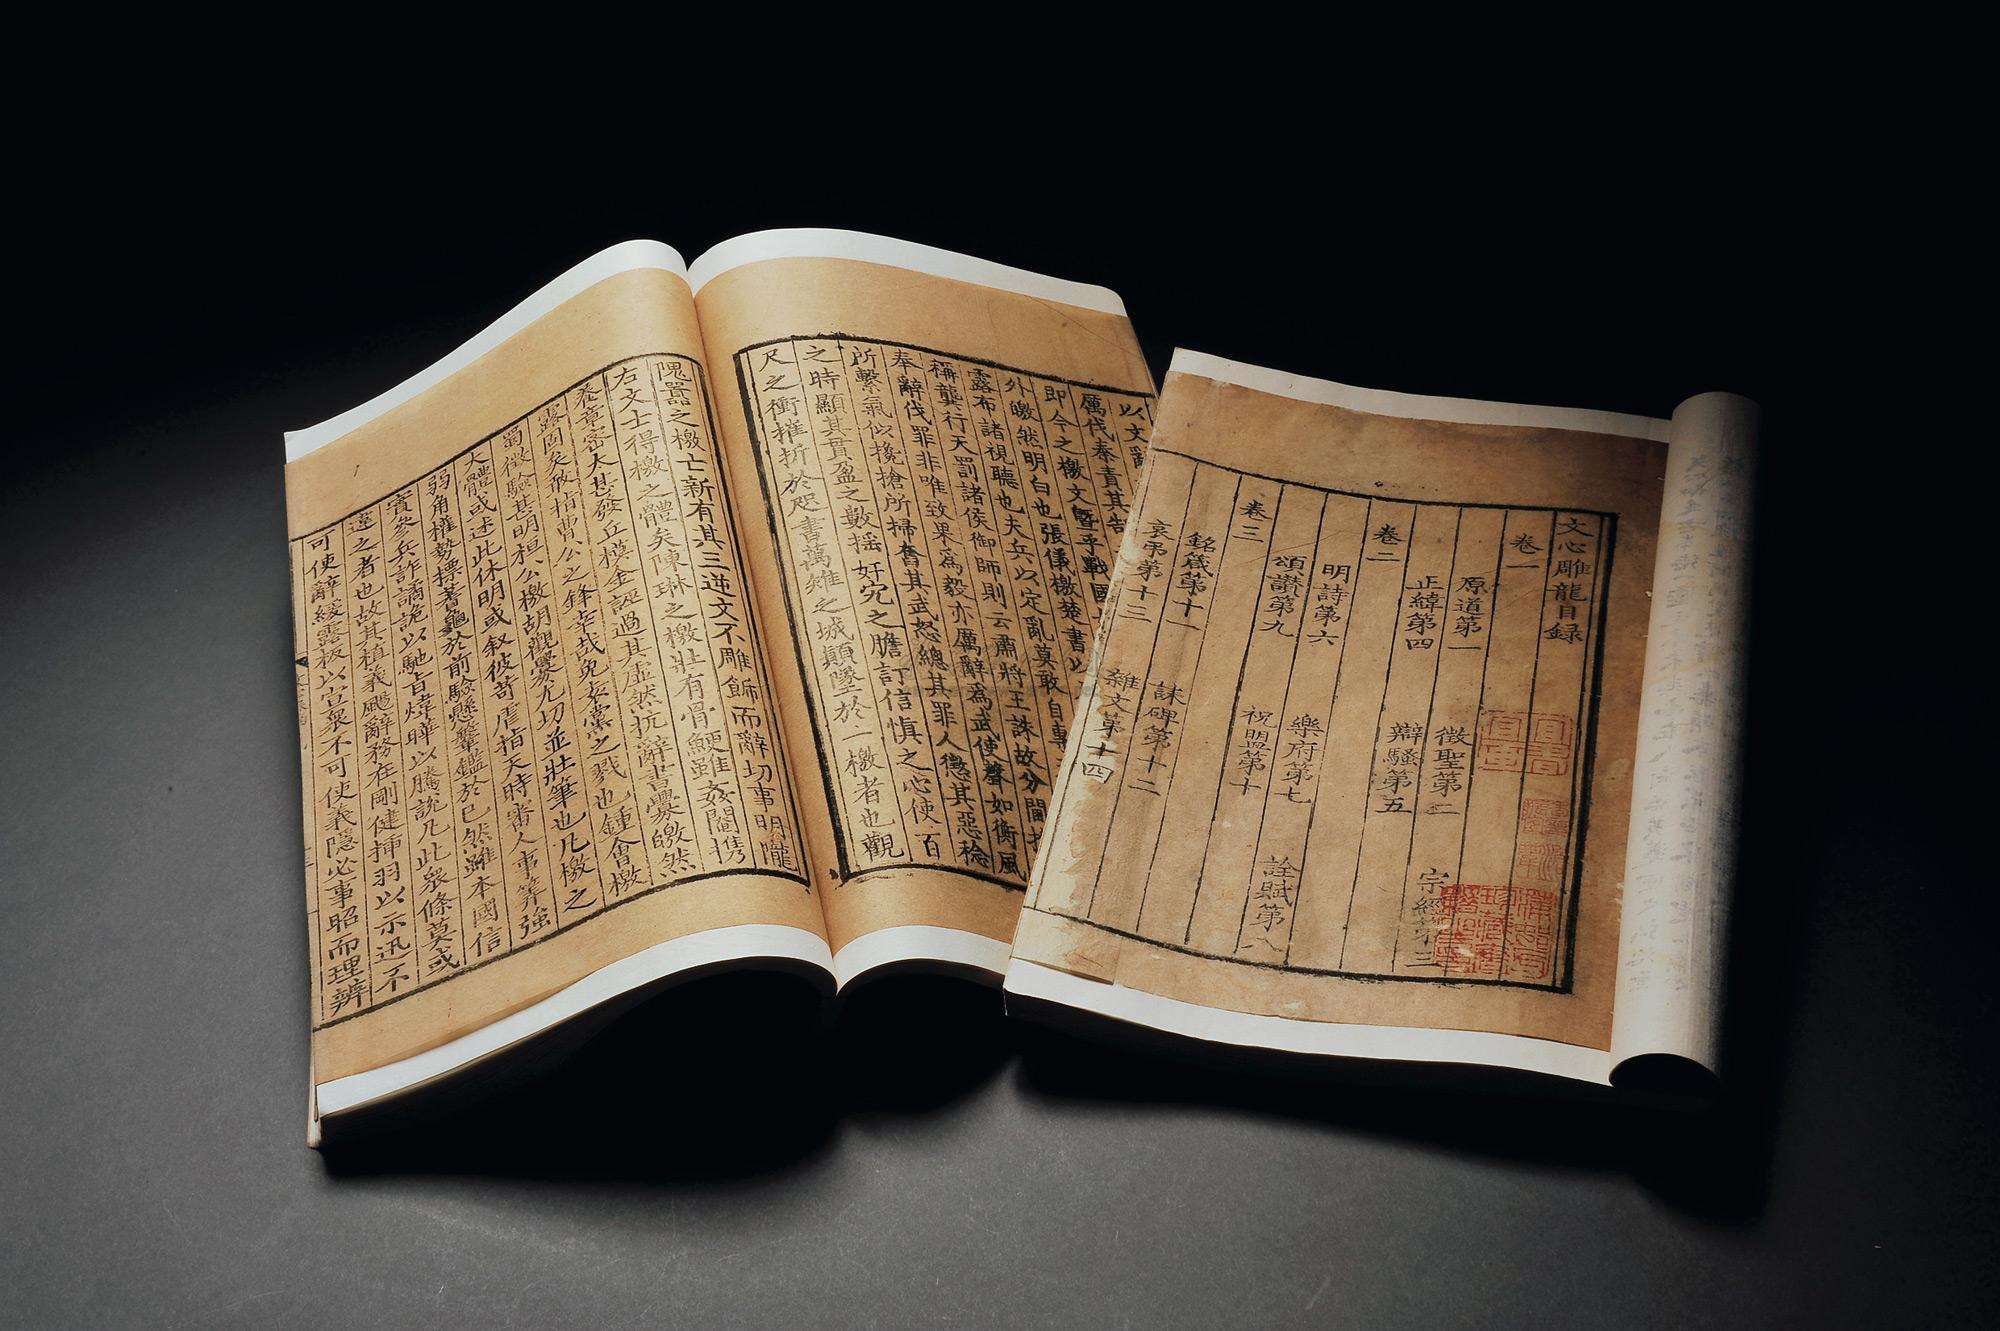 文心雕龍目録
卷一
原道第一 徵聖第二 宗經第三
正緯第四 辯騷第五
卷二
明詩第六 樂府第七 詮賦第八
頌讚第九 祝盟第十
卷三
銘箴第十一 誄碑第十二
哀弔第十三 雜文第十四
以文辭
厲伐秦責其告
即今之檄文曁乎戰國
外皦然明白也張儀檄楚書以
露布諸視聽也夫兵以定亂莫敢自專
稱龔行天罰諸侯御師則云肅將王誅故分閫推
奉辭伐罪非唯致果為毅亦厲辭為武使聲如衝風
所繫氣似攙搶所掃奮其武怒總其罪人懲其惡稔
之時顯其貫盈之數摇奸宄之膽訂信慎之心使百
尺之衝摧折於咫書萬雉之城顛墜於一檄者也觀
隗嚚之檄亡新有其三逆文不雕飾而辭切事明隴
右文士得檄之體矣陳琳之檄壯有骨鯁雖姦閹携
養章密太甚發丘模金誣過其虐然抗辭書釁皦然
露固矣敢指曹公之鋒幸哉免袁黨之戮也鍾會檄
蜀徵驗甚明桓公檄胡觀釁尤切並壯筆也凡檄之
大體或述此休明或叙彼苛虐指天時審人事筭強
弱角權勢標蓍龜於前驗懸鞶鑑於已然雖本國信
實參兵詐譎詭以馳旨煒曄以騰說凡此衆條莫或
違之者也故其植義颺辭務在剛健揷羽以示迅不
可使辭緩露板以宣衆不可使義隱必事昭而理辨